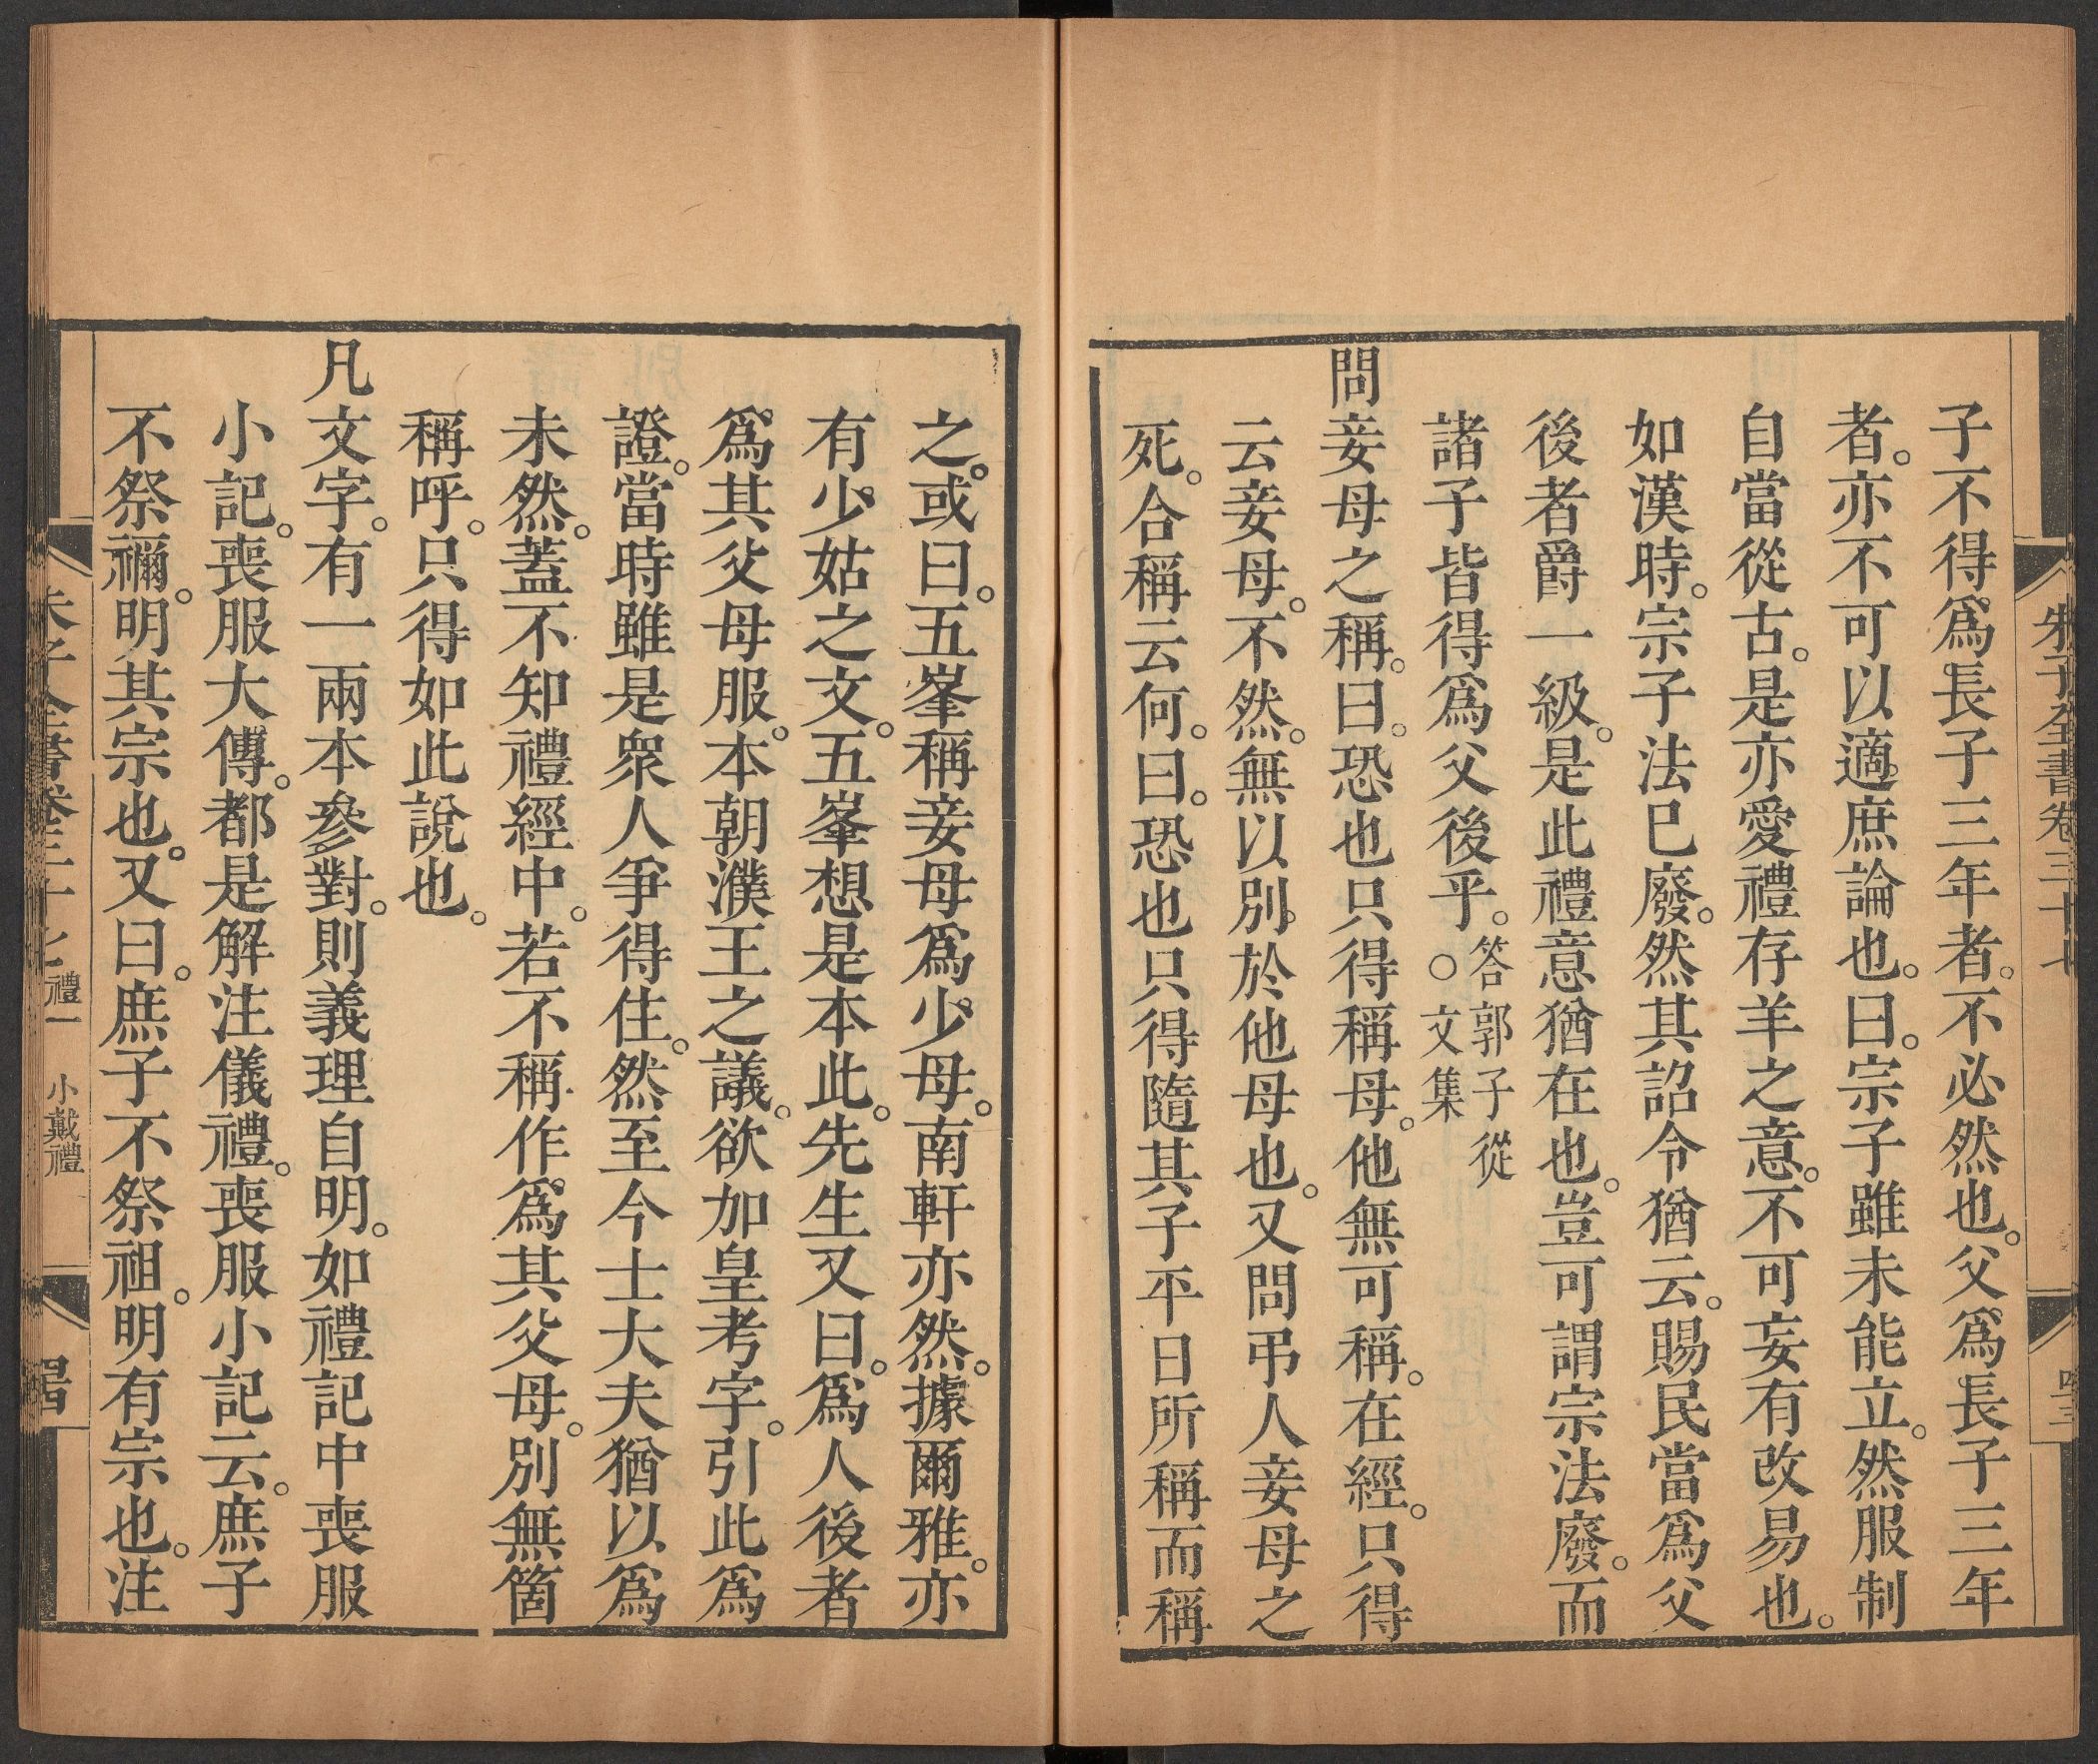 子不得爲長子三年者。不必然也。父爲長子三年
者。亦不可以適庶論也。曰。宗子雖未能立。然服制
自當從古。是亦愛禮存羊之意。不可妄有改易也。
如漢時。宗子法已廢。然其詔令猶云。賜民當爲父
後者爵一級。是此禮意猶在也。豈可謂宗法廢。而
諸子皆得爲父後乎。答郭子從○文集
問妾母之稱。曰。恐也只得稱母。他無可稱。在經。只得
云妾母。不然。無以別於他母也。又問弔人妾母之
死。合稱云何。曰。恐也只得隨其子平日所稱而稱
之。或曰。五峯稱妾母爲少母。南軒亦然。據爾雅。亦
有少姑之文。五峯想是本此。先生又曰。爲人後者
爲其父母服。本朝濮王之議。欲加皇考字。引此爲
證。當時雖是衆人爭得住。然至今士大夫猶以爲
未然。蓋不知禮經中。若不稱作爲其父母。別無箇
稱呼。只得如此說也。
凡文字。有一兩本參對。則義理自明。如禮記中喪服
小記。喪服大傳。都是解注儀禮。喪服小記云。庶子
不祭禰。明其宗也。又曰。庶子不祭祖。明有宗也。注
朱子全書卷三十七
禮一
小戴禮